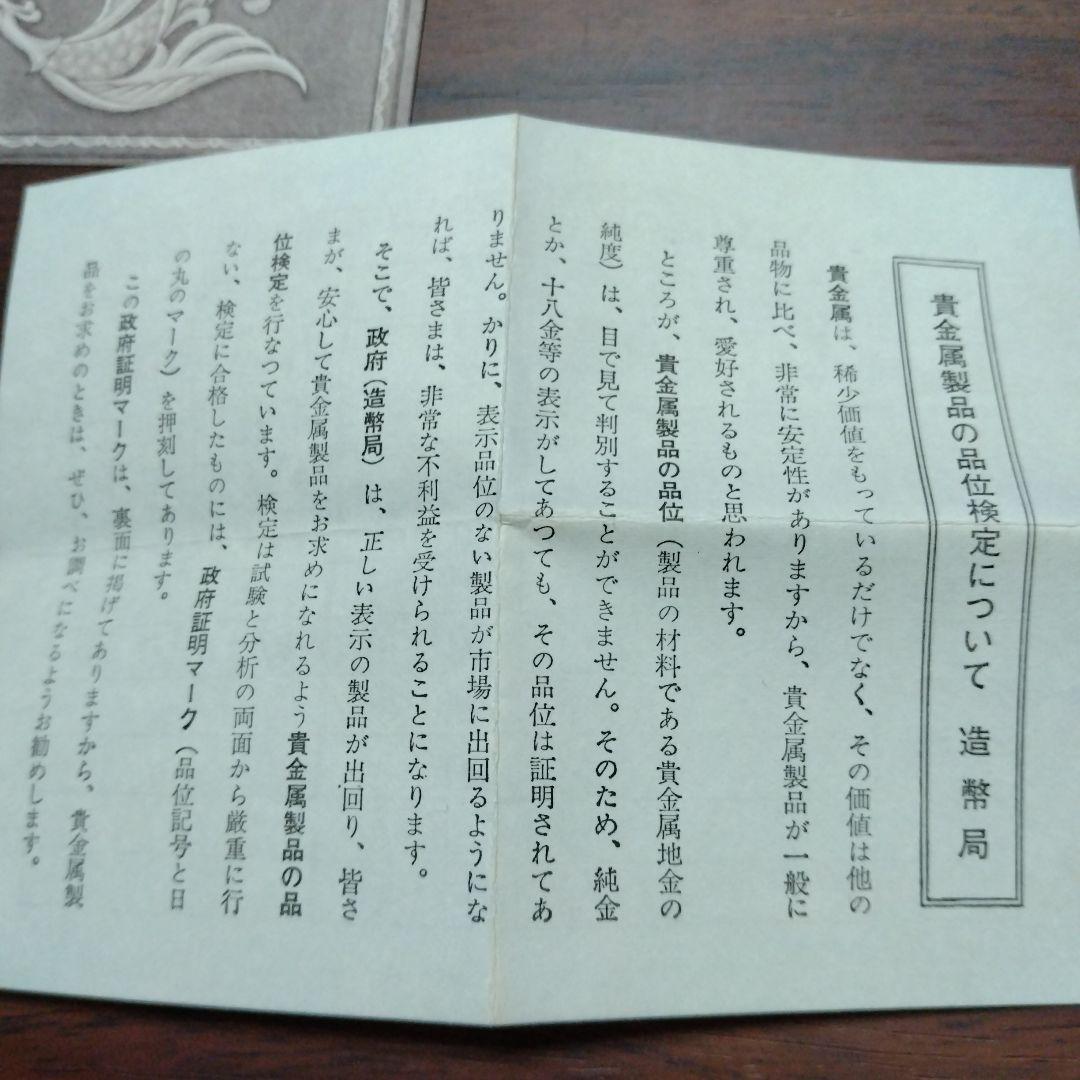 貴金属製品の品位検定について　造幣局
貴金属は、稀少価値をもっているだけでなく、その価値は他の
品物に比べ、非常に安定性がありますから、貴金属製品が一般に
尊重され、愛好されるものと思われます。
ところが、貴金属製品の品位（製品の材料である貴金属地金の
純度）は、目で見て判別することができません。そのため、純金
とか、十八金等の表示がしてあつても、その品位は証明されてあ
りません。かりに、表示品位のない製品が市場に出回るようにな
れば、皆さまは、非常な不利益を受けられることになります。
そこで、政府（造幣局）は、正しい表示の製品が出回り、皆さ
まが、安心して貴金属製品をお求めになれるよう貴金属製品の品
位検定を行なつています。検定は試験と分析の両面から厳重に行
ない、検定に合格したものには、政府証明マーク（品位記号と日
の丸のマーク）を押刻してあります。
この政府証明マークは、裏面に掲げてありますから、貴金属製
品をお求めのときは、ぜひ、お調べになるようお勧めします。